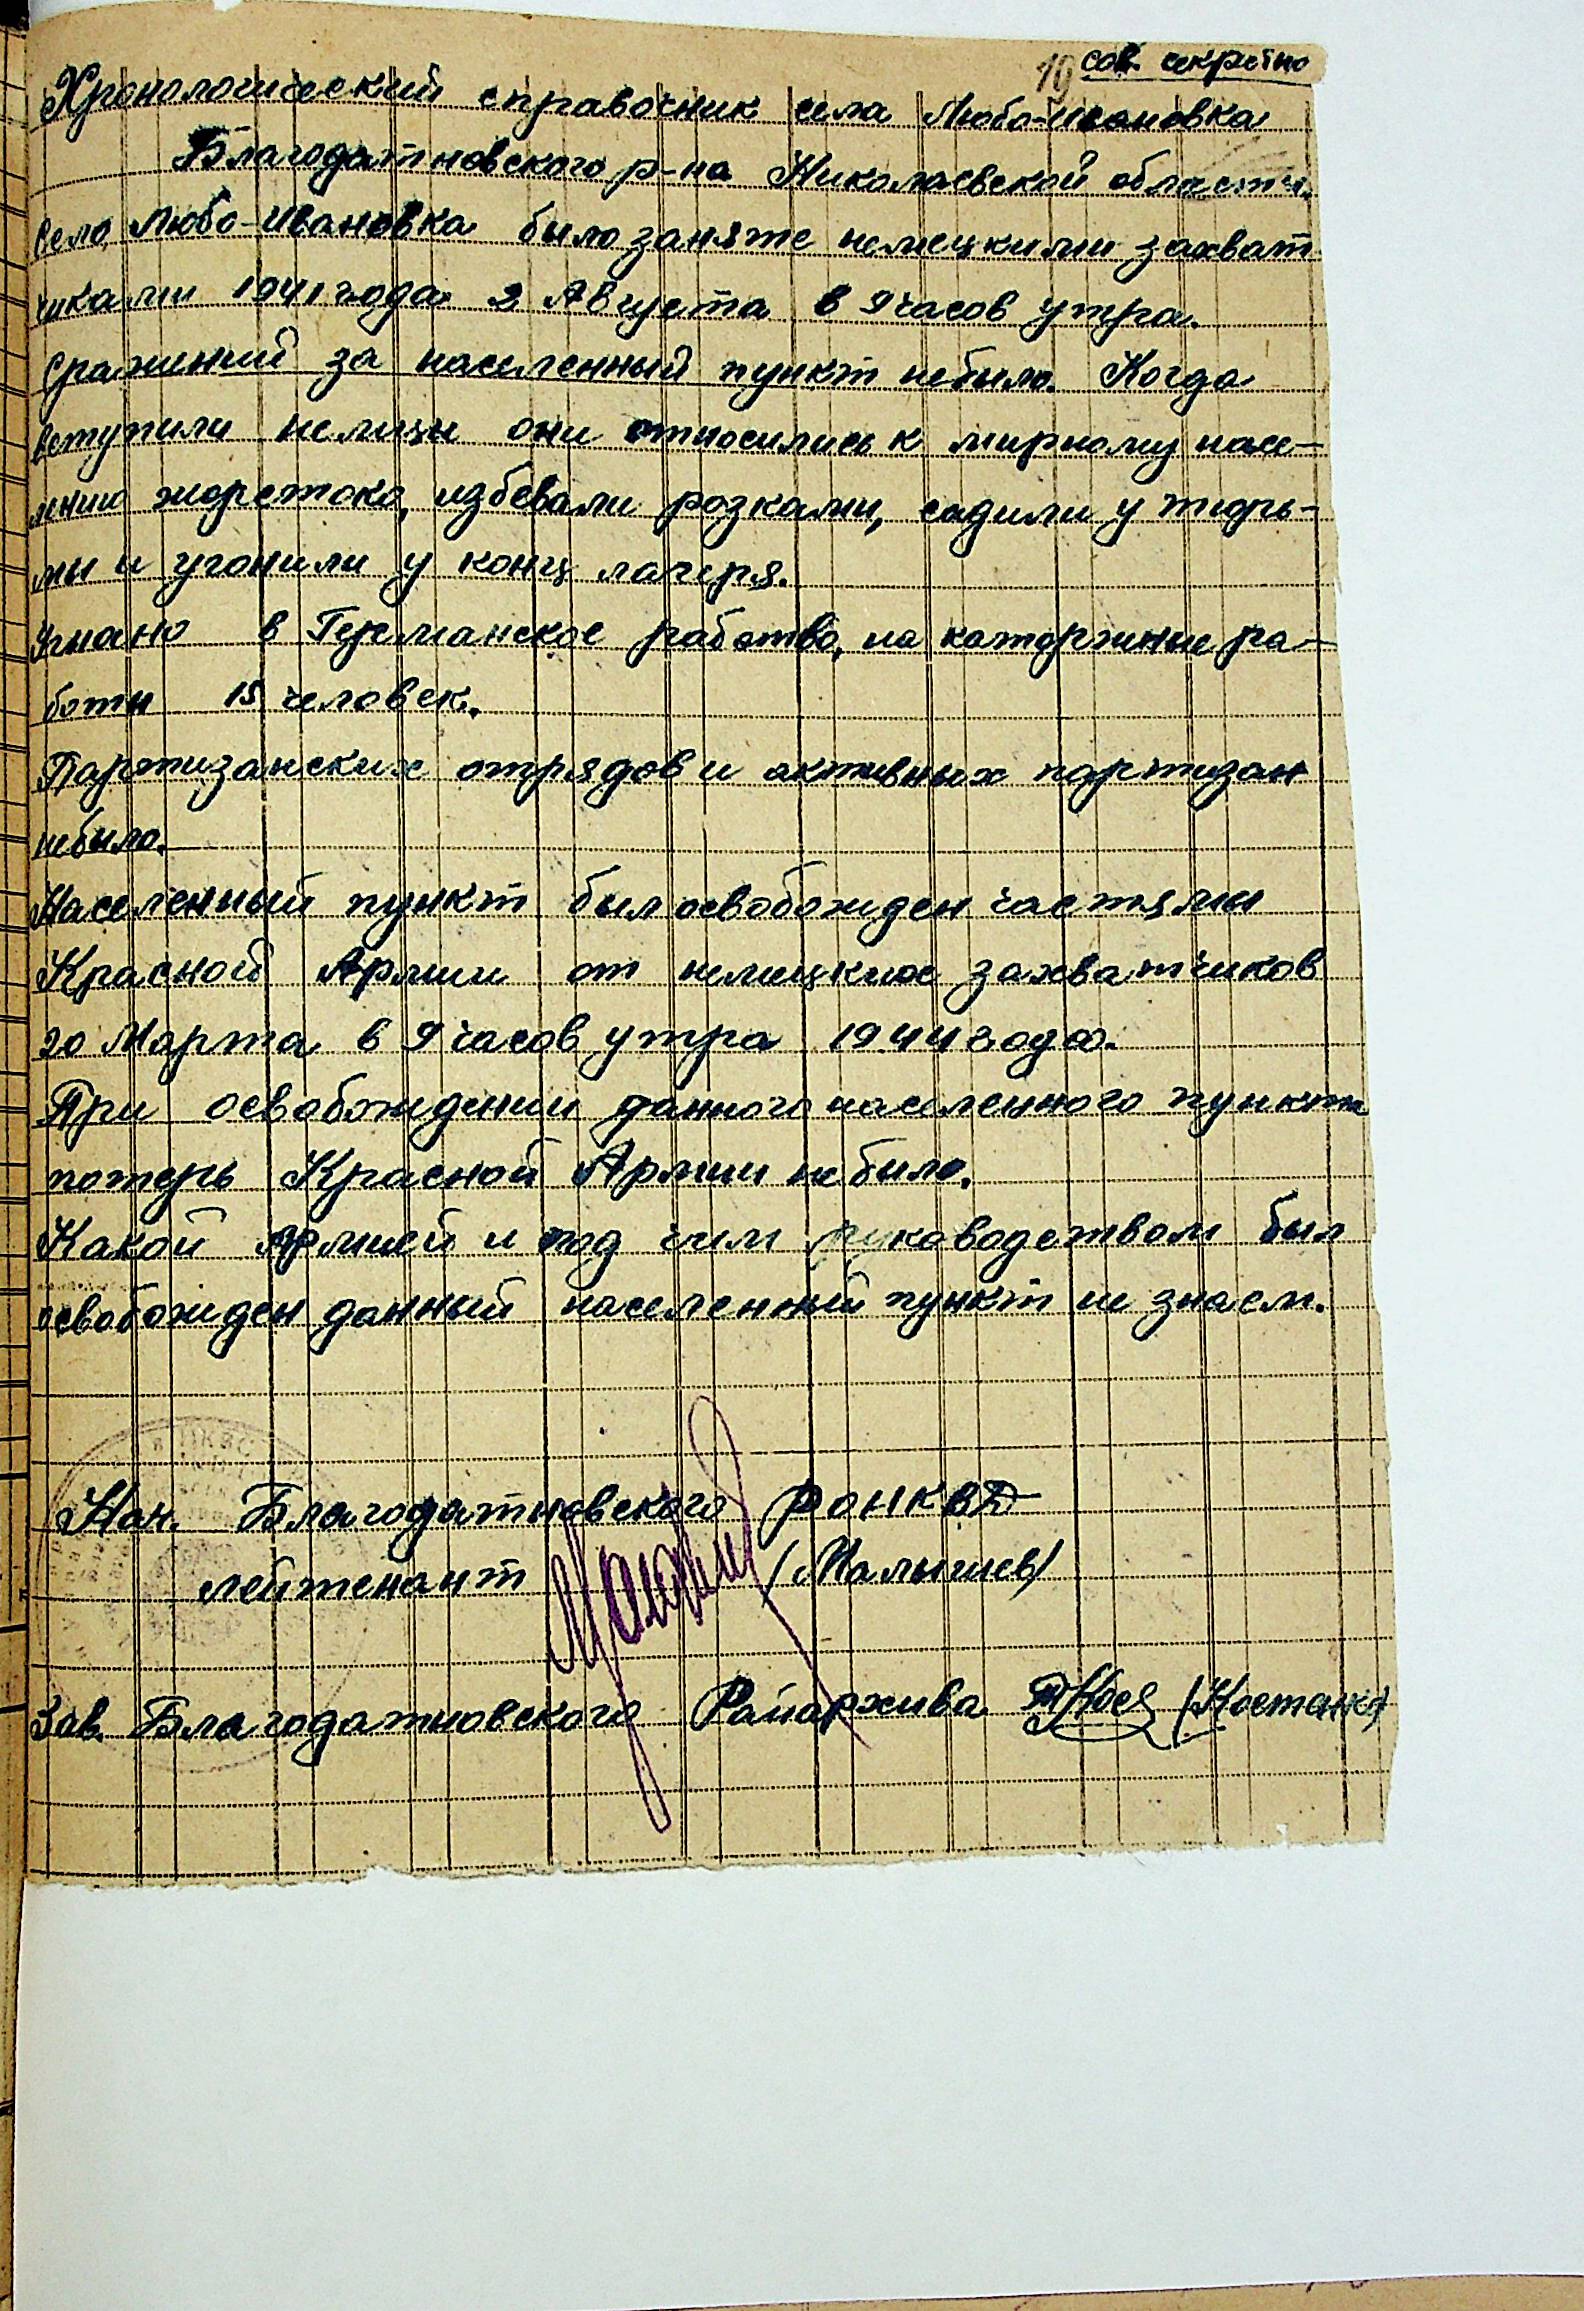 19 сов. секретно
Хронологический справочник села Любо-Ивановка
Благодатновского р-на Николаевской области.
Село Любо-Ивановка было заняте немецкими захват
чиками 1941 года 2 Августа в 9 часов утра.
Сражиний за населенный пункт небыло. Когда
вступили немицы они относились к мирному насе-
лению жорстоко, избевали розками, садили у тюрь-
мы и угонили у конц лагеря.
Угнано в Германское рабство, на каторжные ра-
боты 15 человек.
Партизанских отрядов и активных партизан
небыло.
Населенный пункт был освобожден частями
Красной Армии от немецких захватчиков
20 Марта в 9 часов утра 1944 года.
При освобождении данного населенного пункта
потерь Красной Армии небыло.
Какой Армией и под чим руководством был
освобожден данный населенный пункт не знаем.
Нач. Благодатновского РОНКВД
лейтенант (Малышев)
Зав. Благодатновского Райархива (Костенко)